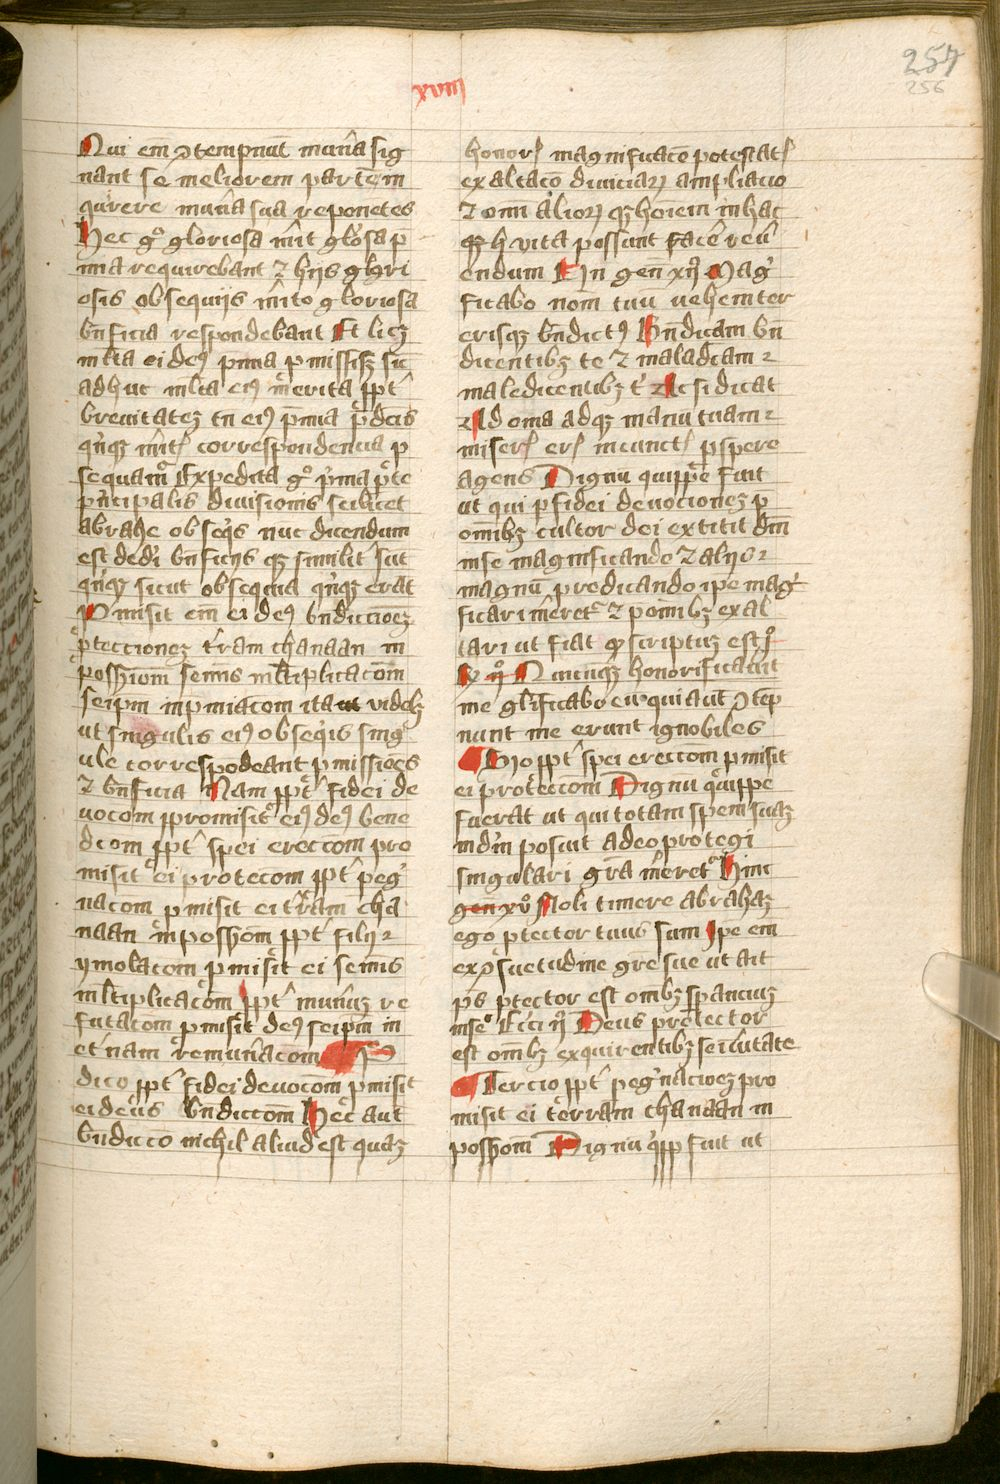 257
256
xviij
Qui em̄ ꝯtempnūt mun̄a sig
nant se meliorem partem
querere mun̄a sua reponētes
Hec gͦ gloriosa mīt glōsa p
mia requirebant ⁊ hijs glori
osis obsequijs mīto gloriosa
bn̄ficia respondebant Et licꝫ
ml̄ta ei deꝰ p̄mia pmissisꝫ sū
adhuc ml̄ta eiꝰ merita ꝓpt̄
breuitateꝫ tn̄ eiꝰ p̄mia p̄dc̄is
qn̄qꝫ mīt correspondencia p
sequamᷣ Expedita gͦ p̄ma pͣte
pn̄cipalis diuisionis scilicet
abrahe obseqͥs nūc dicendum
est de dei bn̄ficijs qꝫ similit̄ sūt
qn̄qꝫ sicut obsequia qn̄qꝫ erāt
Pmisit em̄ ei deꝰ bn̄diccioneꝫ
ꝓteccioneꝫ tr̄ram chanaan in
possessiom̄ semīs ml̄tiplicacōm
seipm̄ in p̄miacōm ita ut videlꝫ
ut singulis eiꝰ obseqͥis singᷣ
ule correspōdeant pmissiōes
⁊ bn̄ficia Nam ꝓpt̄ fidei de
uocom̄ ꝓpromisit eiꝰ deꝰ bene
dc̄om ꝓpt̄ spei ereccōm pro
misit ei protecōm ꝓpt̄ pegᷣ
nacōm pmisit ei tr̄ram cha
naan in possessōm ꝓpt̄ filij
ymolacōm pmisit ei semīs
ml̄tiplicacōm ꝓpt̄ munūꝫ re
futacōm pmisit deꝰ seipm̄ in
et̄nam remun̄acōm P
dico ꝓpt̄ fidei deuocōm pmisit
ei deus bn̄diccōm Hec aūt
bn̄diccō nichil aliud est quaꝫ
honorꝭ magnificacō potestatꝭ
exaltacō diuiciarꝝ ampliacio
⁊ om̄i aliorꝝ qꝫ hōiem in hac
qꝫ h vita possunt facē reū
endum Hin gen̄ xijͦ Magᷣ
ficabo nom̄ tuū uehemter
erisqꝫ bn̄dictꝰ Bn̄dicam bn̄
dicentibꝫ te ⁊ maladicam
maledicentibꝫ tᷤ Ac si dicat
Ad om̄ia adqꝫ manū tuam
miserꝭ erꝭ in cunctꝭ pspere
agens Dignū quippe fuit
ut qui p fidei deuocioneꝫ p
om̄ibꝫ cultor dei extitit dm̄
in se magnificando ⁊ alijs
magnū predicando ipe magᷣ
ficari merēt ⁊ p om̄ibꝫ exal
tari ut fiat qd scriptuꝫ est jͦ
R ijͦ Quicūqꝫ honorificauit
me glificabo eū qui aūt ꝯtēp
nunt me erunt ignobiles
Scdo ꝓpt̄ spei ereccōm pmisit
ei proteccōm Dignū quippe
fuerat ut qui totam spem suaꝫ
in dm̄ posuit a deo protegi
singulari grā merēt Hinc
gen̄ xvͦ Noli timere abrahaꝫ
ego ptector tuus sum Ipe em̄
ex ꝯsuetudine gre sue ut ait
ps ptector est om̄bꝫ spanciuꝫ
in se Ecci ijͦ Deus protector
est om̄ibꝫ exquirentibꝫ se ī v̄itate
Tercio ꝓpt̄ pegᷣnacioeꝫ pro
misit ei terram chanaan in
possessōm Dignū qͥpp fuit ut